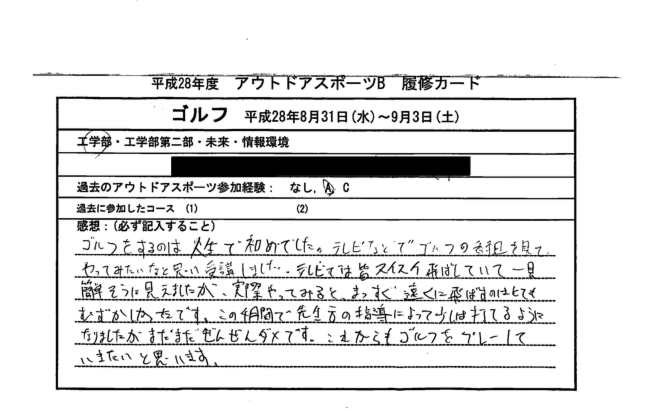 平成28年度 アウトドアスポーツB 履修カード
ゴルフ 平成28年8月31日(水)~9月3日(土)
工学部・工学部第二部・未来・情報環境
過去のアウトドアスポーツ参加経験: なし, A, C
過去に参加したコース (1) (2)
感想:(必ず記入すること)
ゴルフをするのは人生で初めてでした。テレビなどでゴルフの番組を見て、
やってみたいなと思い受講しました。テレビでは皆スイスイ飛ばしていて一見
簡単そうに見えましたが、実際やってみると、まっすぐ遠くに飛ばすのはとても
むずかしかったです。この4日間で先生方の指導によって少しは打てるように
なりましたがまだまだぜんぜんダメです。これからもゴルフをプレーして
いきたいと思います。